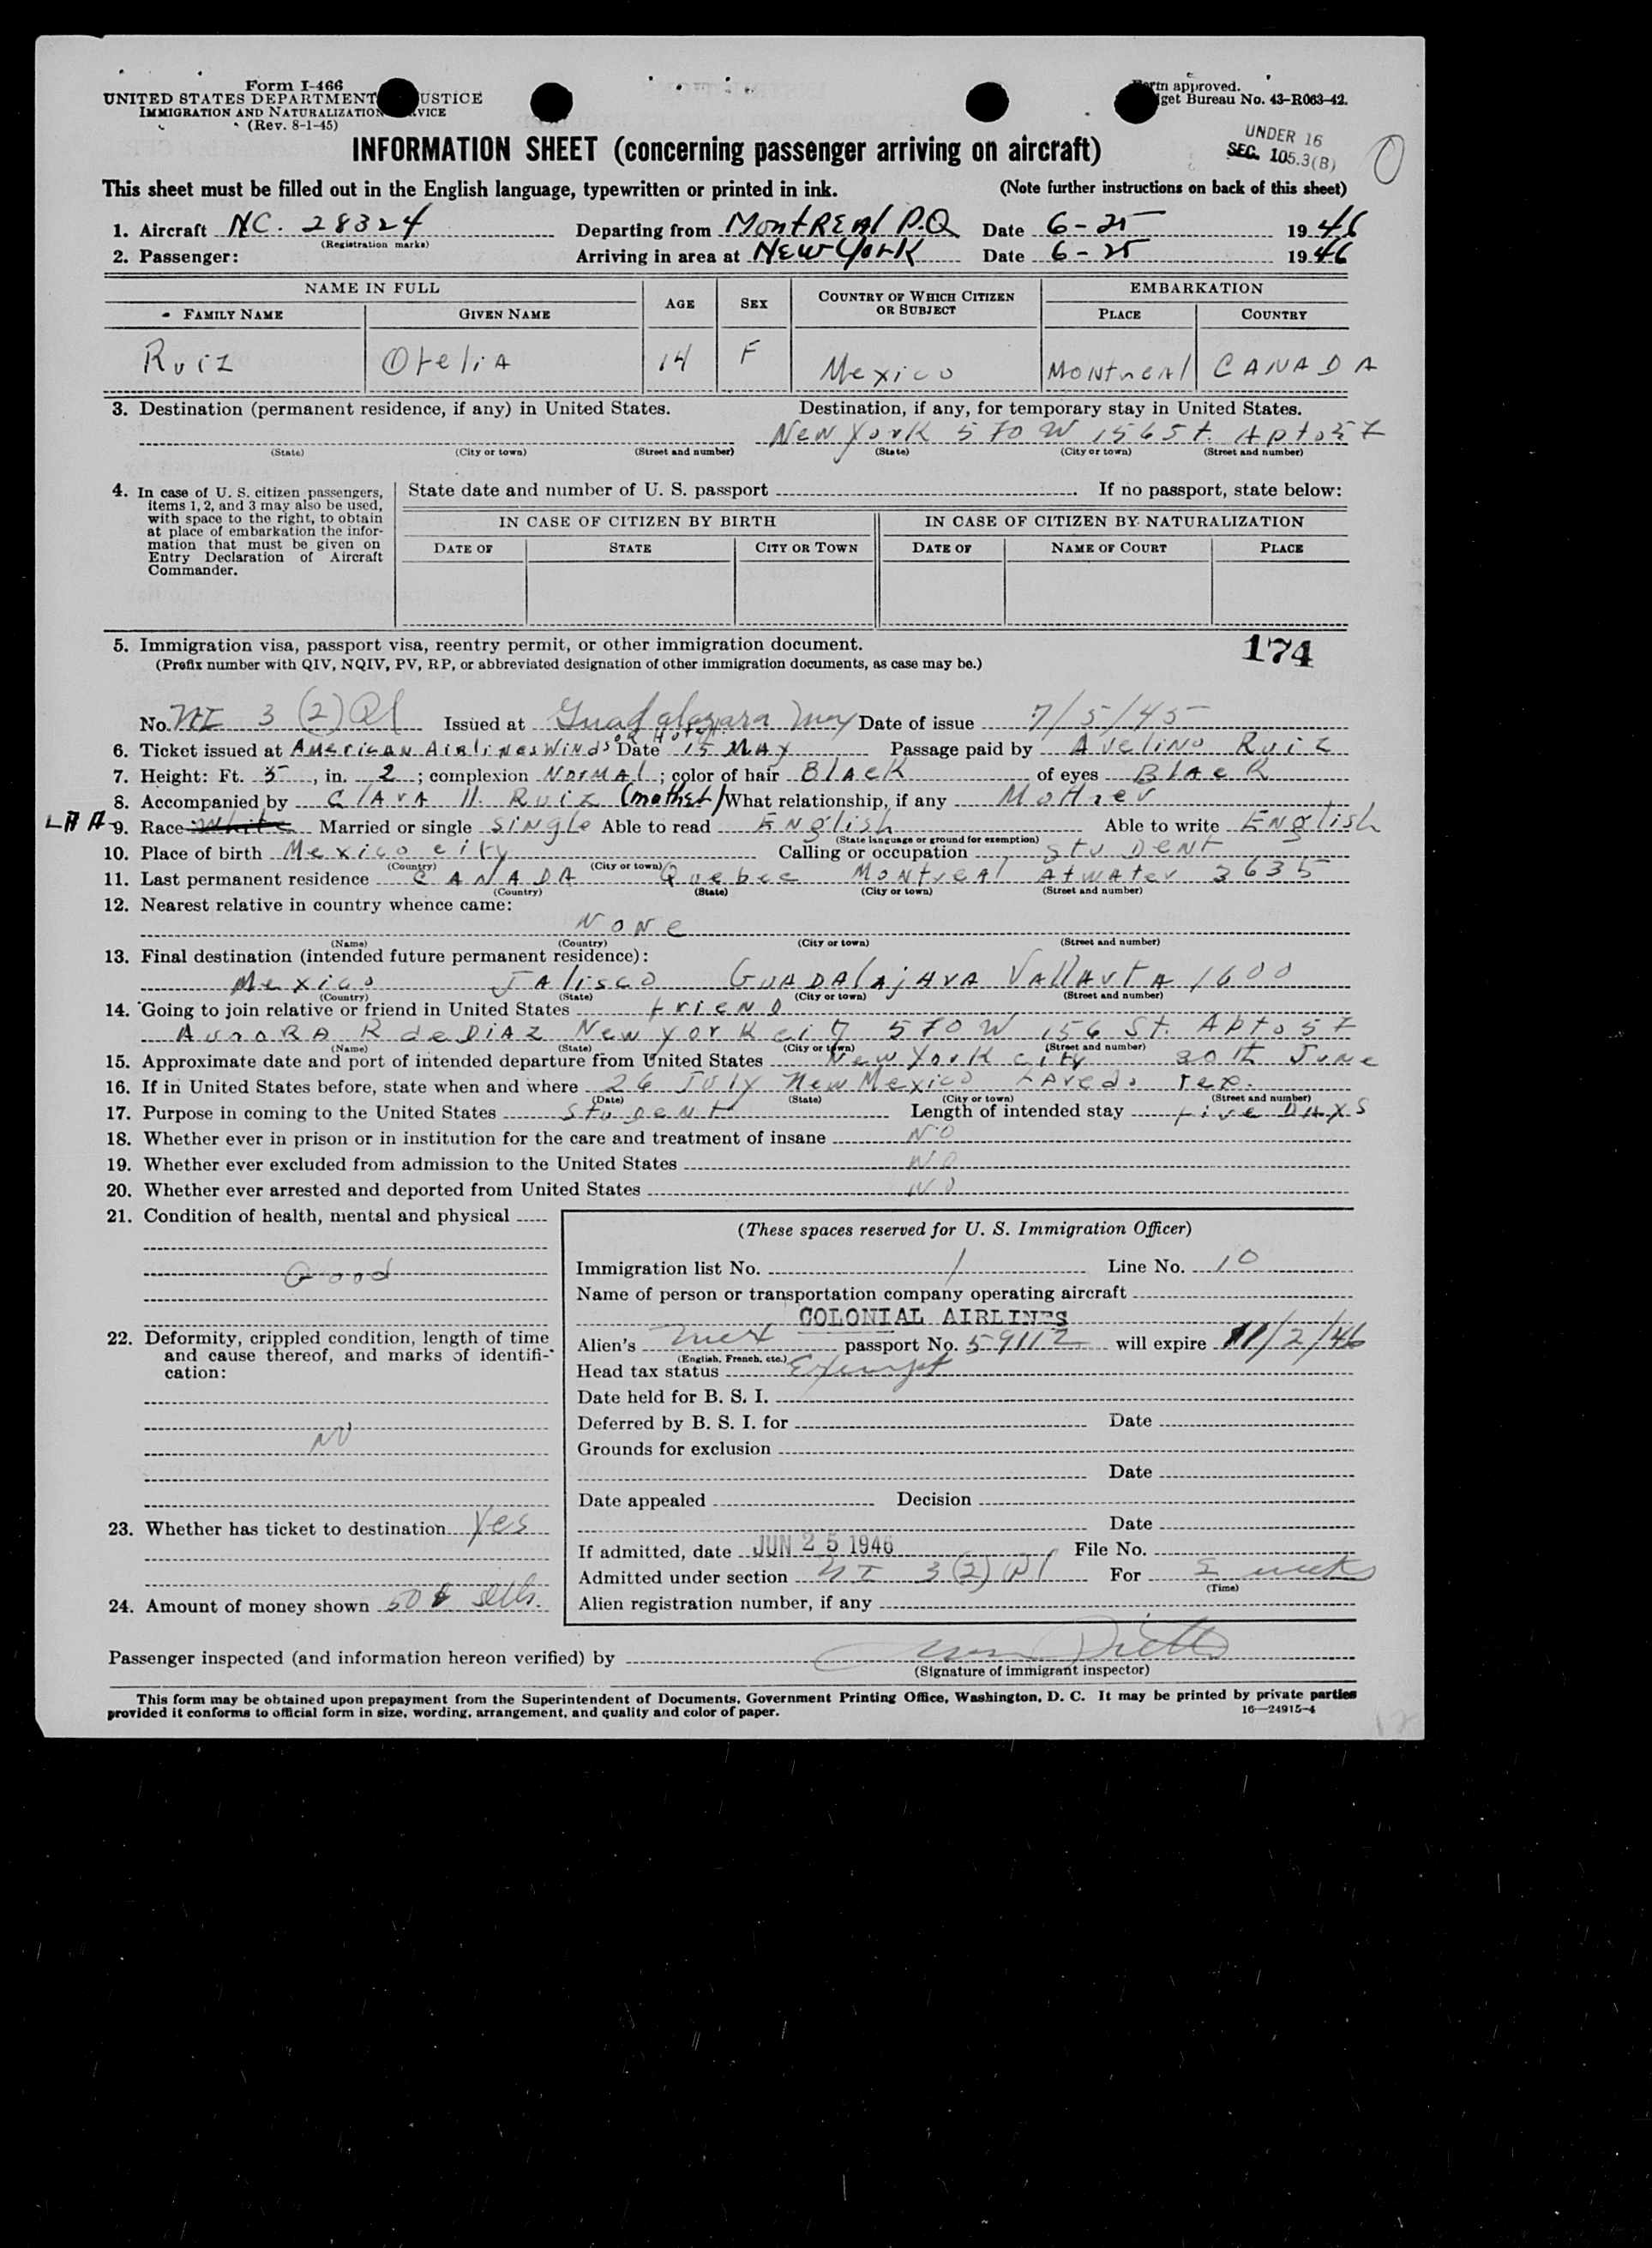 Form I-466
UNITED STATES DEPARTMENT USTICE
IMMIGRATION AND NATURALIZATION VICE
(Rev. 8-1-45)
Form approved.
get Bureau No. 43-R063-42.
UNDER 16
SEC. 105.3(B)
INFORMATION SHEET (concerning passenger arriving on aircraft)
This sheet must be filled out in the English language, typewritten or printed in ink. (Note further instructions on back of this sheet)
1. Aircraft NC. 28324 Departing from MontREAl P.Q Date 6-25 1946
(Registration marks)
2. Passenger: Arriving in area at NEW YorK Date 6-25 1946
NAME IN FULL AGE SEX COUNTRY OF WHICH CITIZEN OR SUBJECT EMBARKATION
FAMILY NAME GIVEN NAME PLACE COUNTRY
Ruiz OteliA 14 F Mexico MONtreAl CANADA
3. Destination (permanent residence, if any) in United States. Destination, if any, for temporary stay in United States.
New York 570 W 156 St. Apto 57
(State) (City or town) (Street and number) (State) (City or town) (Street and number)
4. In case of U. S. citizen passengers, items 1, 2, and 3 may also be used, with space to the right, to obtain at place of embarkation the information that must be given on Entry Declaration of Aircraft Commander.
State date and number of U. S. passport If no passport, state below:
IN CASE OF CITIZEN BY BIRTH IN CASE OF CITIZEN BY NATURALIZATION
DATE OF STATE CITY OR TOWN DATE OF NAME OF COURT PLACE
5. Immigration visa, passport visa, reentry permit, or other immigration document. 174
(Prefix number with QIV, NQIV, PV, RP, or abbreviated designation of other immigration documents, as case may be.)
No. NI 3 (2) Issued at Guadalajara Date of issue 7/5/45
6. Ticket issued at American Airlines Winds or Hotel Date 15 MAY Passage paid by Avelino Ruiz
7. Height: Ft. 5, in. 2; complexion NormAl; color of hair BlAcK of eyes BlAcK
8. Accompanied by ClArA H. Ruiz (mother) What relationship, if any Mother
9. Race White Married or single single Able to read English Able to write English
(State language or ground for exemption)
10. Place of birth Mexico city Calling or occupation stuDeNt
(Country) (City or town)
11. Last permanent residence CANADA Quebec MONtreAl AtwAter 3635
(Country) (State) (City or town) (Street and number)
12. Nearest relative in country whence came:
NoNe
(Name) (Country) (City or town) (Street and number)
13. Final destination (intended future permanent residence):
Mexico JAlisco GUADALAjArA VallArtA 1600
(Country) (State) (City or town) (Street and number)
14. Going to join relative or friend in United States frieND
AuroRA R de DiAz New york city 570 W 156 St. Apto 57
(Name) (State) (City or town) (Street and number)
15. Approximate date and port of intended departure from United States New York city 30th June
16. If in United States before, state when and where 26 July New Mexico Laredo Tex.
(Date) (State) (City or town) (Street and number)
17. Purpose in coming to the United States student Length of intended stay five DAYS
18. Whether ever in prison or in institution for the care and treatment of insane NO
19. Whether ever excluded from admission to the United States NO
20. Whether ever arrested and deported from United States NO
21. Condition of health, mental and physical
Good
22. Deformity, crippled condition, length of time and cause thereof, and marks of identification:
NO
23. Whether has ticket to destination Yes
24. Amount of money shown 50 $
(These spaces reserved for U. S. Immigration Officer)
Immigration list No. 1 Line No. 10
Name of person or transportation company operating aircraft
COLONIAL AIRLINES
Alien's Mex passport No. 59112 will expire 11/2/46
(English, French, etc.)
Head tax status Exempt
Date held for B. S. I.
Deferred by B. S. I. for Date
Grounds for exclusion
Date
Date appealed Decision
Date
If admitted, date JUN 25 1946 File No.
Admitted under section NI 3 (2) For 2 weeks
(Time)
Alien registration number, if any
Passenger inspected (and information hereon verified) by
(Signature of immigrant inspector)
This form may be obtained upon prepayment from the Superintendent of Documents, Government Printing Office, Washington, D. C. It may be printed by private parties
provided it conforms to official form in size, wording, arrangement, and quality and color of paper. 16—24915-4